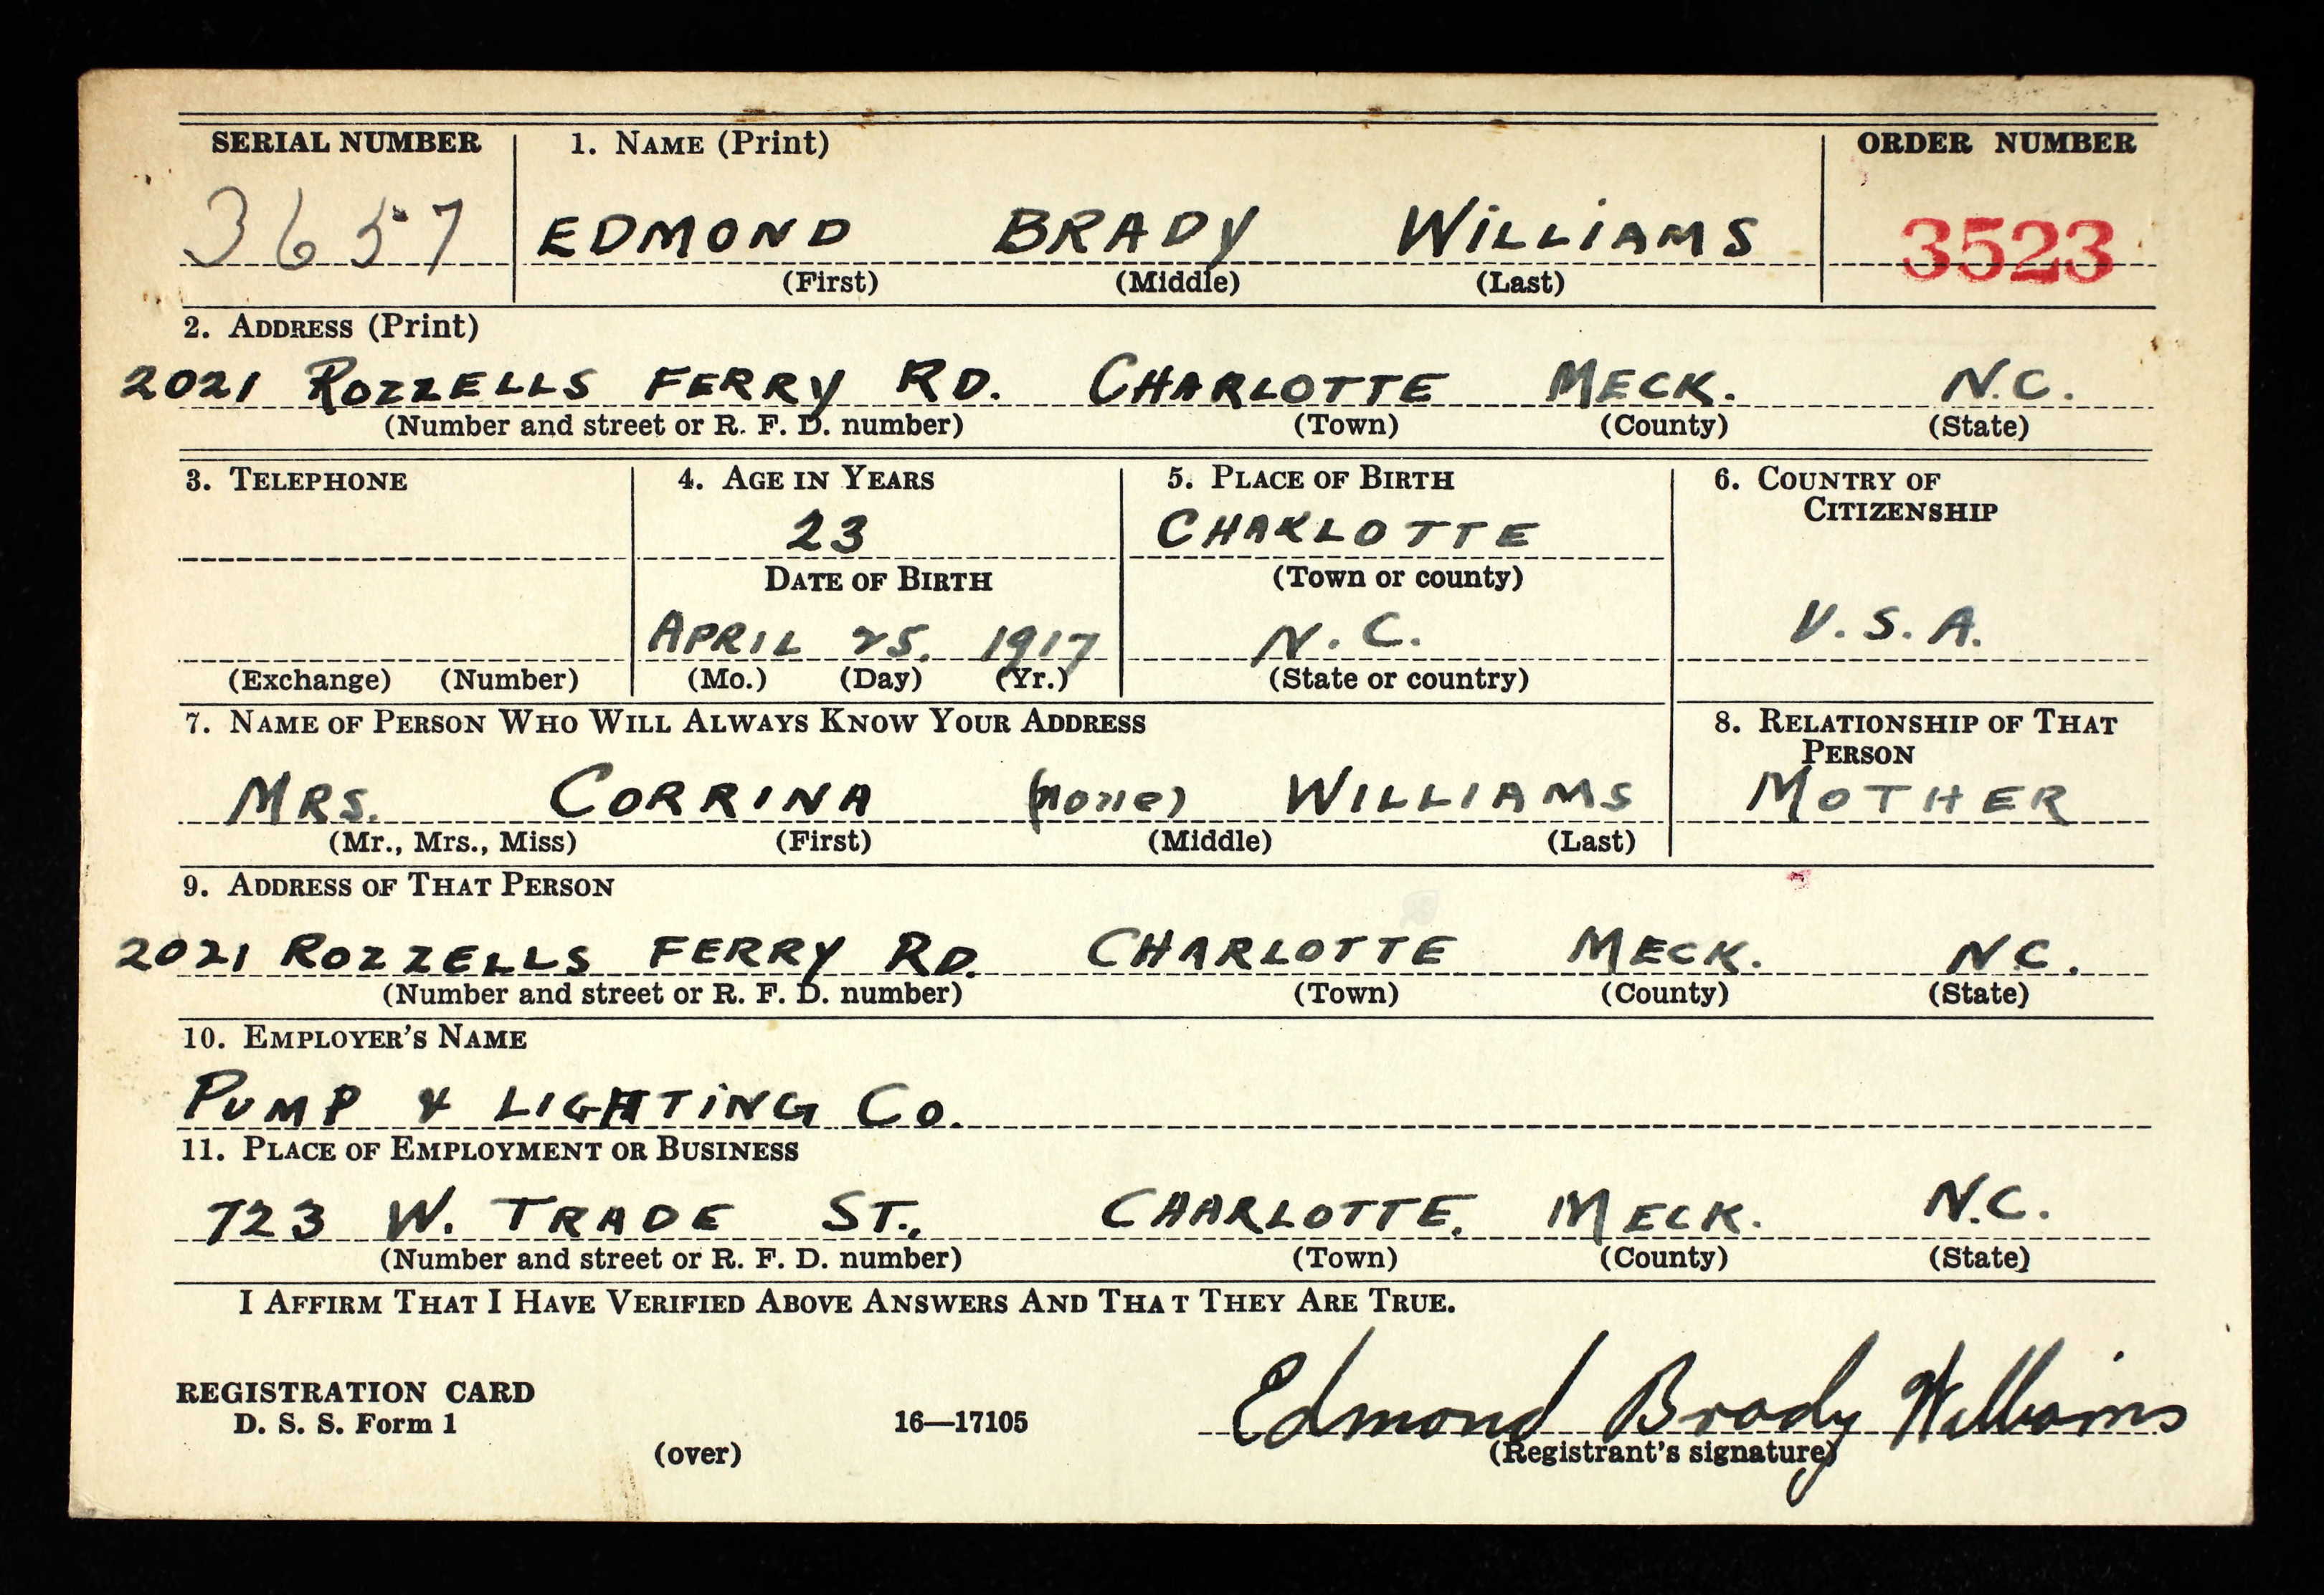 SERIAL NUMBER 1. NAME (Print) ORDER NUMBER
3657 EDMOND BRADY WILLIAMS 3523
(First) (Middle) (Last)
2. ADDRESS (Print)
2021 ROZZELLS FERRY RD. CHARLOTTE MECK. N.C.
(Number and street or R. F. D. number) (Town) (County) (State)
3. TELEPHONE 4. AGE IN YEARS 5. PLACE OF BIRTH 6. COUNTRY OF
CITIZENSHIP
23 CHARLOTTE
DATE OF BIRTH (Town or county)
APRIL 25, 1917 N.C. U.S.A.
(Exchange) (Number) (Mo.) (Day) (Yr.) (State or country)
7. NAME OF PERSON WHO WILL ALWAYS KNOW YOUR ADDRESS 8. RELATIONSHIP OF THAT
PERSON
MRS. CORRINA (none) WILLIAMS MOTHER
(Mr., Mrs., Miss) (First) (Middle) (Last)
9. ADDRESS OF THAT PERSON
2021 ROZZELLS FERRY RD. CHARLOTTE MECK. N.C.
(Number and street or R. F. D. number) (Town) (County) (State)
10. EMPLOYER'S NAME
PUMP & LIGHTING CO.
11. PLACE OF EMPLOYMENT OR BUSINESS
723 W. TRADE ST., CHARLOTTE, MECK. N.C.
(Number and street or R. F. D. number) (Town) (County) (State)
I AFFIRM THAT I HAVE VERIFIED ABOVE ANSWERS AND THAT THEY ARE TRUE.
REGISTRATION CARD
D. S. S. Form 1 16—17105 Edmond Brady Williams
(over) (Registrant's signature)